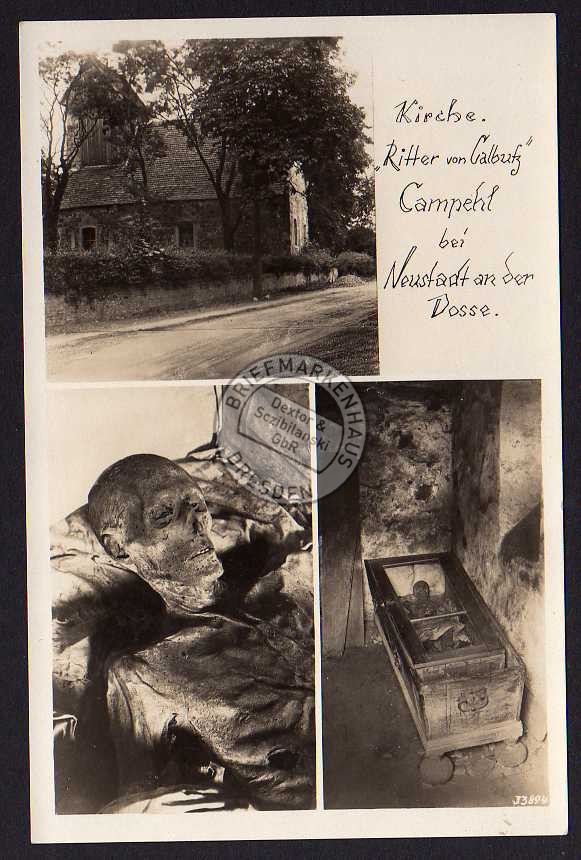 Kirche.
„Ritter von Calbutz"
Campehl
bei
Neustadt an der
Dosse.
BRIEFMARKENHAUS
Dextor &
Sczibilanski
GbR
DRESDEN
J3894